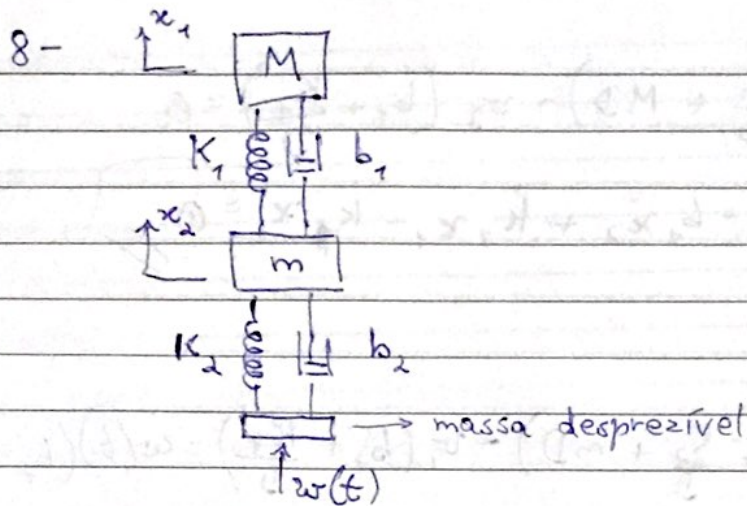 8-
x₁
M
K₁ b₁
x₂
m
K₂ b₂
→ massa desprezível
w(t)